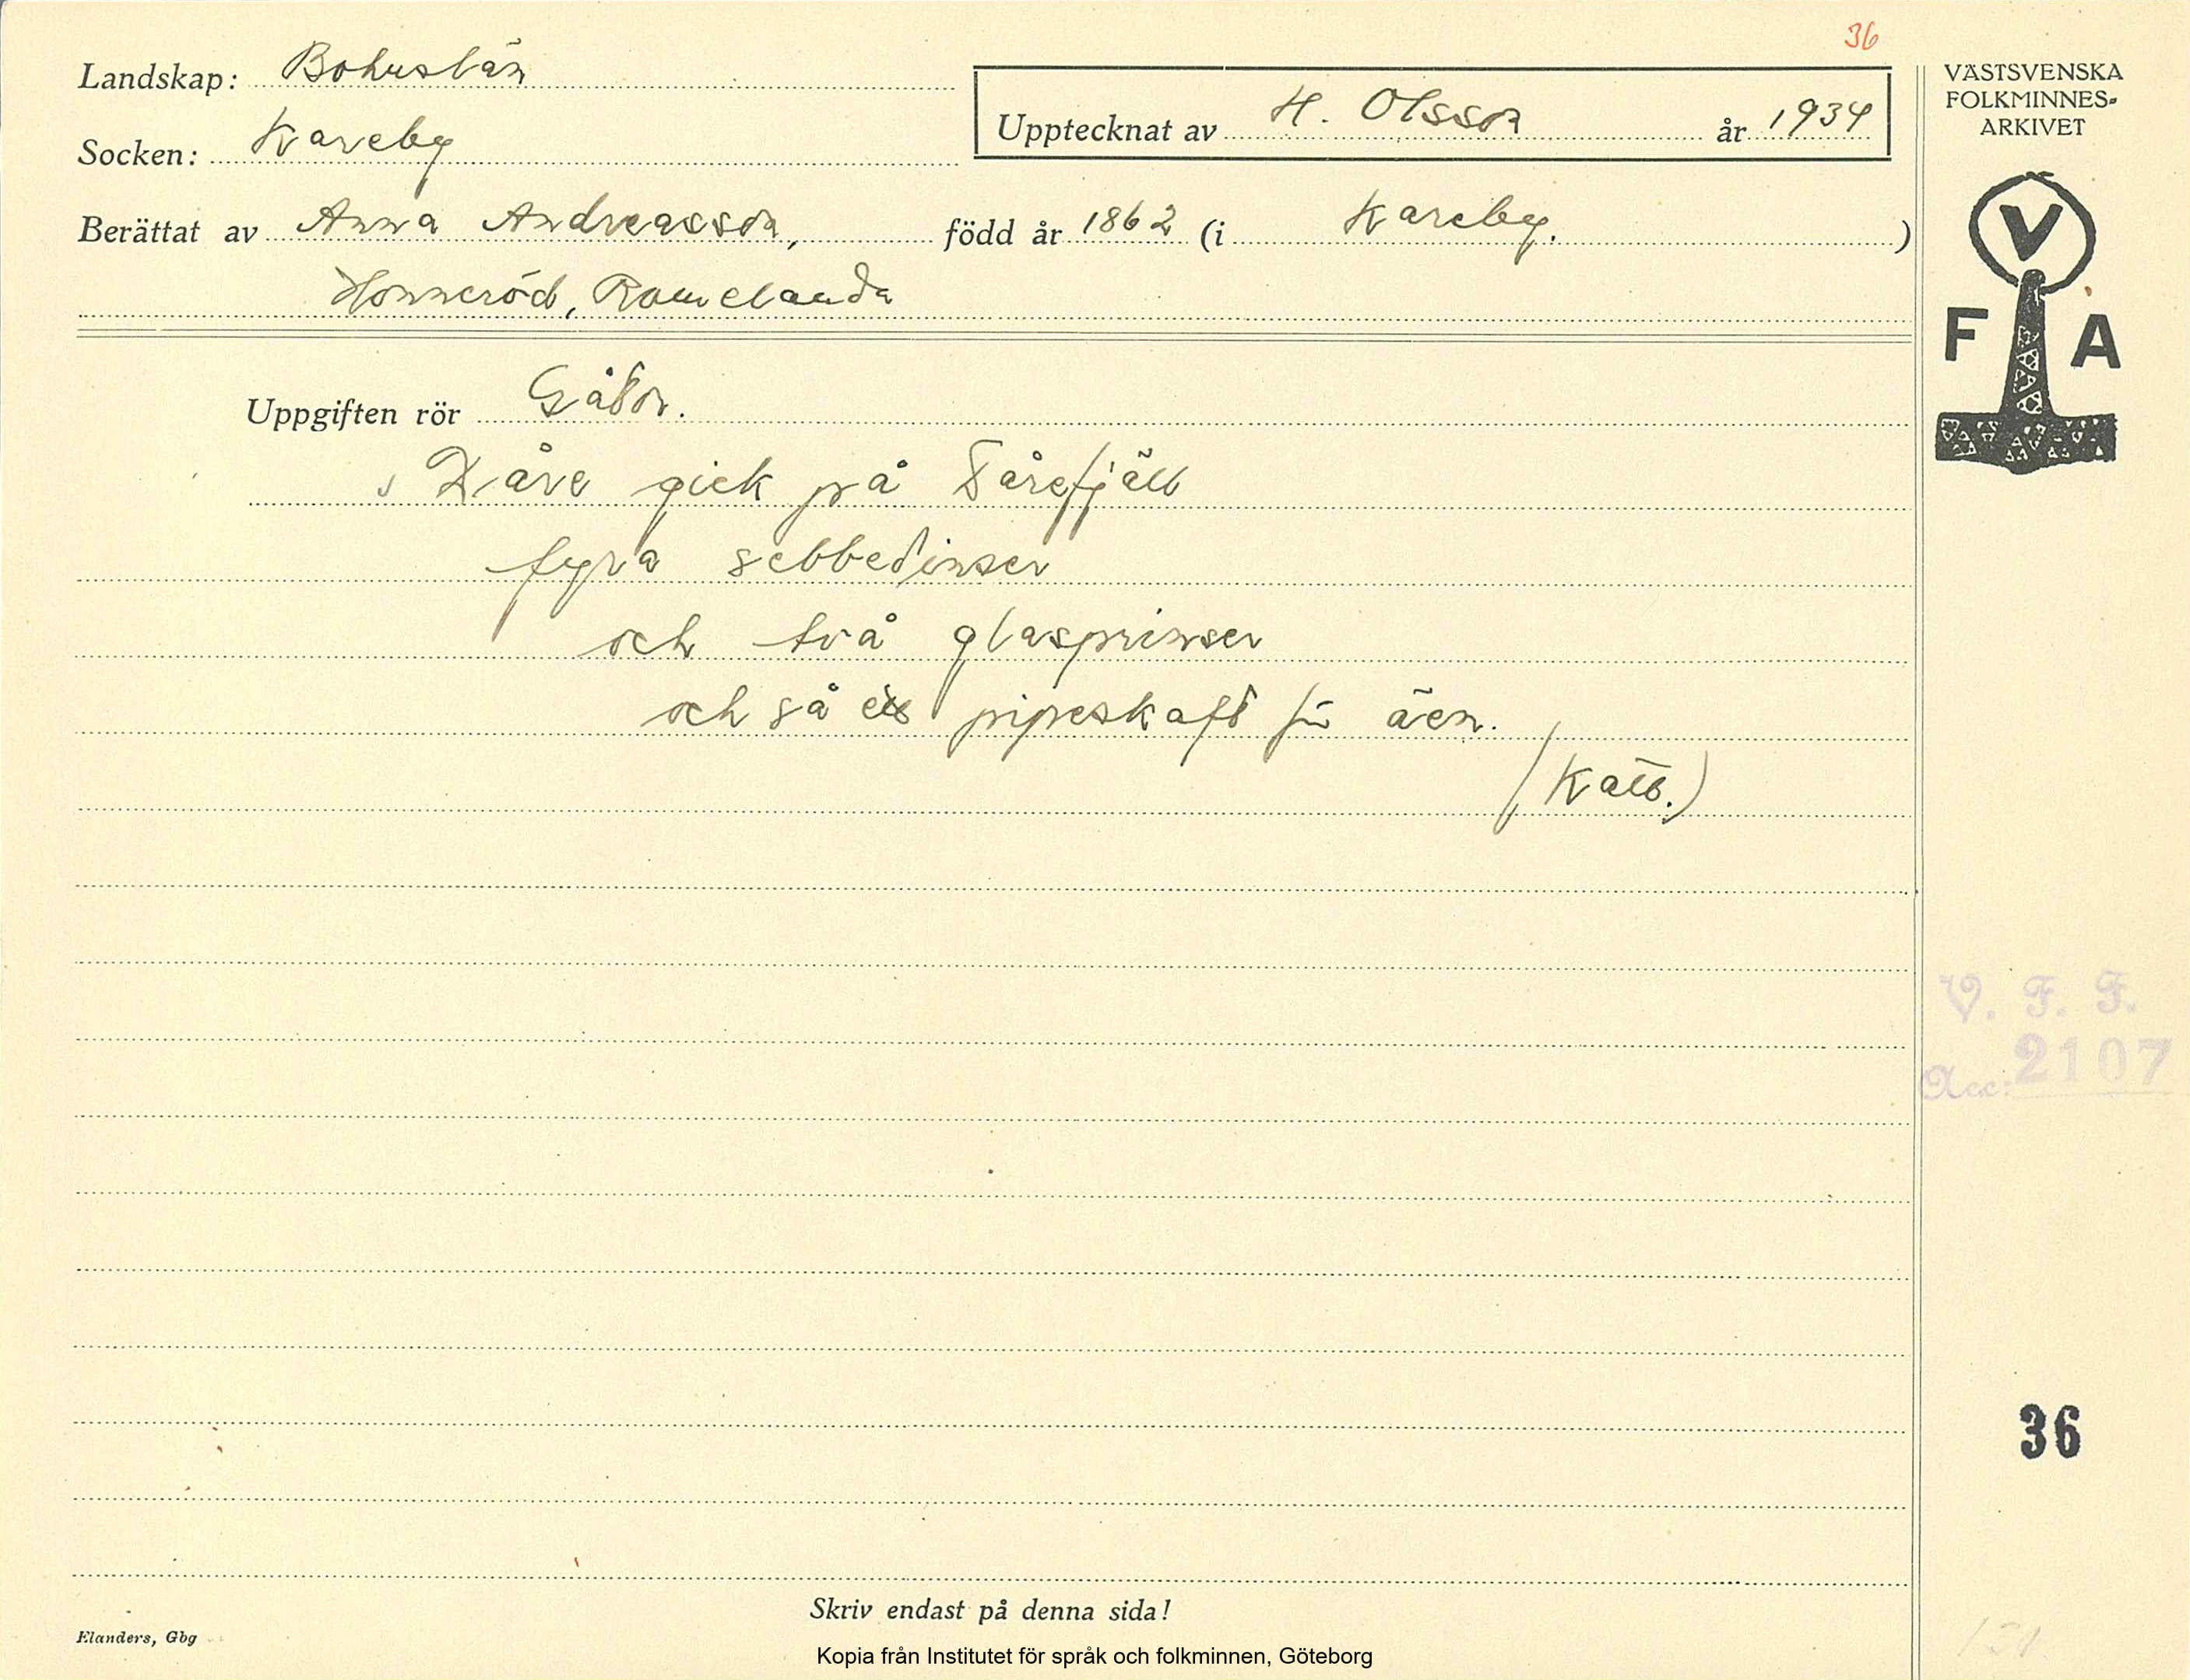 36
Landskap: Bohuslän
Socken: Kareby
Upptecknat av H. Olsson år 1934
Berättat av Anna Andreasson, född år 1862 (i Kareby. )
Honneröd, Romelanda
VÄSTSVENSKA
FOLKMINNES-
ARKIVET
V
F A
Uppgiften rör Gåtor.
Kåre gick på Tårefjäll
fyra sebbedinser
och två glasprinser
och så ett pipeskaft för äen.
(Katt.)
V. F. F.
Acc: 2107
36
Skriv endast på denna sida!
Elanders, Gbg
Kopia från Institutet för språk och folkminnen, Göteborg